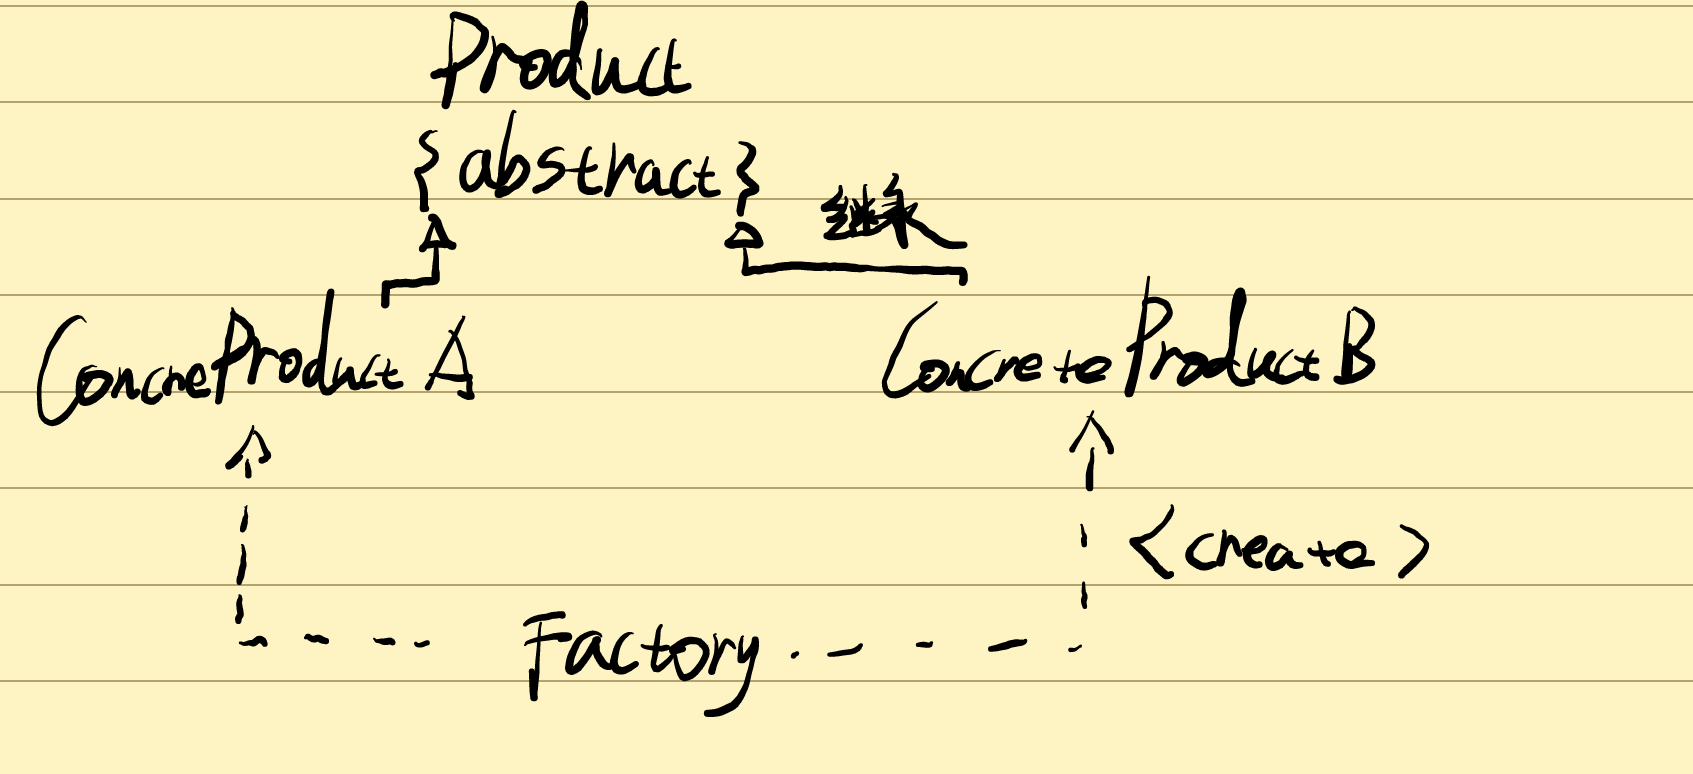 Product
{abstract}
继承
ConcreProductA
ConcreteProductB
<create>
Factory